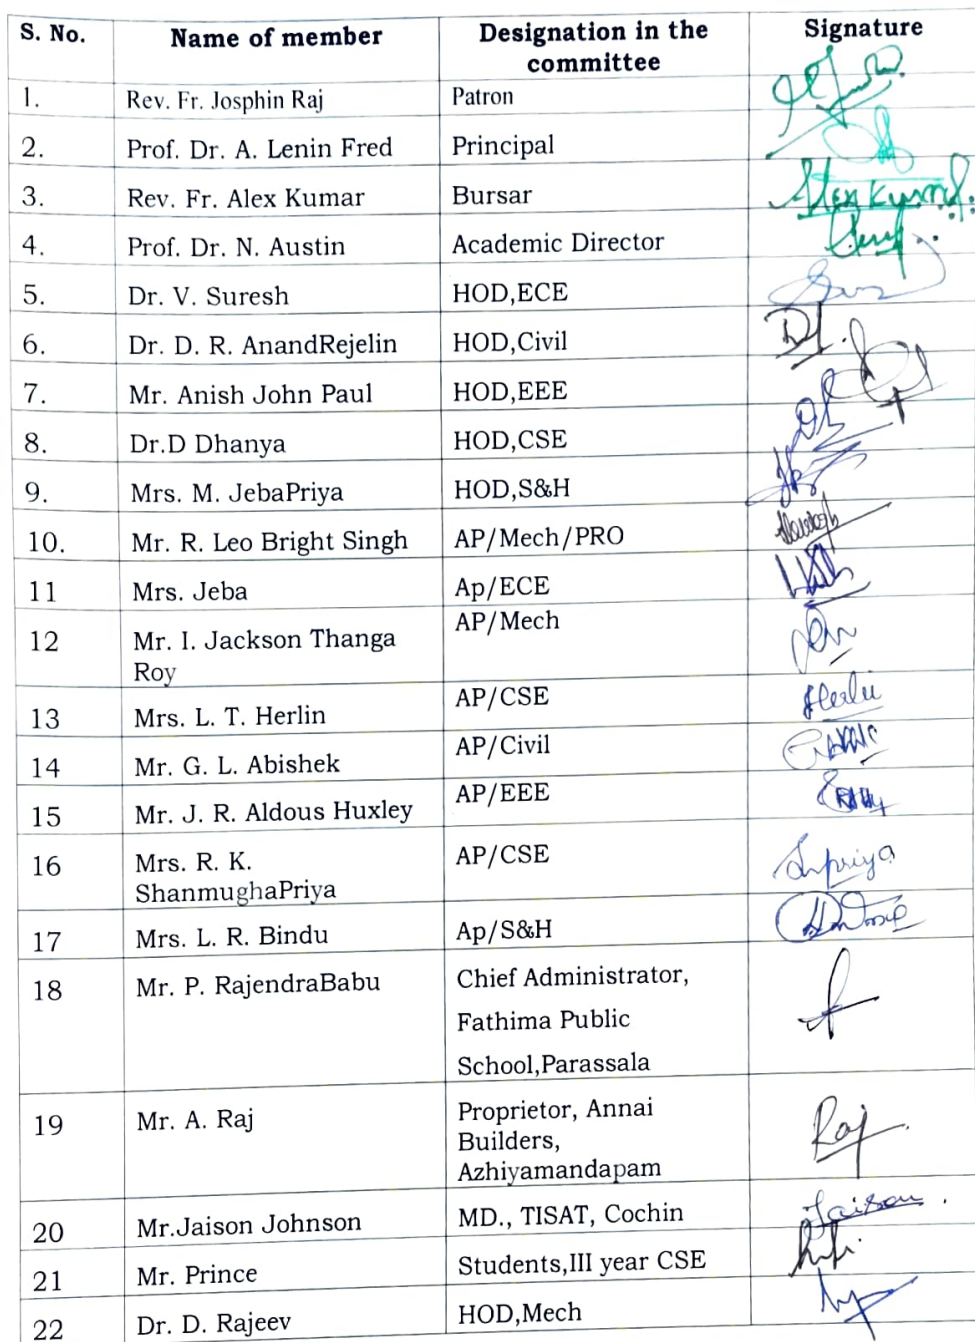 S. No. Name of member Designation in the Signature
committee
1. Rev. Fr. Josphin Raj Patron
2. Prof. Dr. A. Lenin Fred Principal
3. Rev. Fr. Alex Kumar Bursar Alex Kumar
4. Prof. Dr. N. Austin Academic Director
5. Dr. V. Suresh HOD,ECE
6. Dr. D. R. AnandRejelin HOD,Civil
7. Mr. Anish John Paul HOD,EEE
8. Dr.D Dhanya HOD,CSE
9. Mrs. M. JebaPriya HOD,S&H
10. Mr. R. Leo Bright Singh AP/Mech/PRO
11 Mrs. Jeba Ap/ECE
12 Mr. I. Jackson Thanga AP/Mech
Roy
13 Mrs. L. T. Herlin AP/CSE
14 Mr. G. L. Abishek AP/Civil
15 Mr. J. R. Aldous Huxley AP/EEE
16 Mrs. R. K. AP/CSE
ShanmughaPriya
17 Mrs. L. R. Bindu Ap/S&H
18 Mr. P. RajendraBabu Chief Administrator,
Fathima Public
School,Parassala
19 Mr. A. Raj Proprietor, Annai Raj
Builders,
Azhiyamandapam
20 Mr.Jaison Johnson MD., TISAT, Cochin Jaison
21 Mr. Prince Students,III year CSE
22 Dr. D. Rajeev HOD,Mech